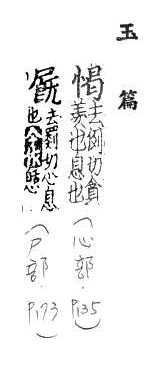 玉篇
愒去例切貪羨也息也（心部·P.135）
去罽切心息也（尸部·P.173）